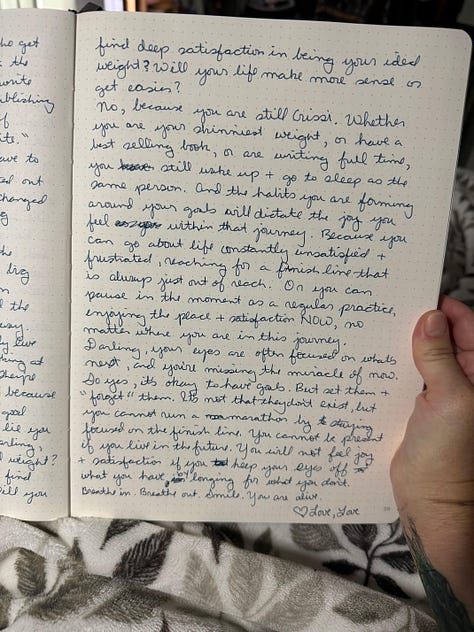 ho get
the
write
blishing
of
ite."
ave to
ed out
changed
g
the
drag
n
d the
way.
ly live
king at
Sharpe
t because
good
lie you
arling,
weight?
find
ill you
find deep satisfaction in being your ideal
weight? Will your life make more sense or
get easier?
No, because you are still Crissi. Whether
you are your skinniest weight, or have a
best selling book, or are writing full time,
you still wake up + go to sleep as the
same person. And the habits you are forming
around your goals will dictate the joy you
feel within that journey. Because you
can go about life constantly unsatisfied +
frustrated, reaching for a finish line that
is always just out of reach. Or you can
pause in the moment as a regular practice,
enjoying the place + satisfaction NOW, no
matter where you are in this journey.
Darling, your eyes are often focused on what's
next, and you're missing the miracle of now.
So yes, it's okay to have goals. But set them +
"forget" them. It's not that they don't exist, but
you cannot run a marathon by staying
focused on the finish line. You cannot be present
if you live in the future. You will not feel joy
+ satisfaction if you keep your eyes off
what you have, longing for what you don't.
Breathe in. Breathe out. Smile. You are alive.
♡ Love, Love